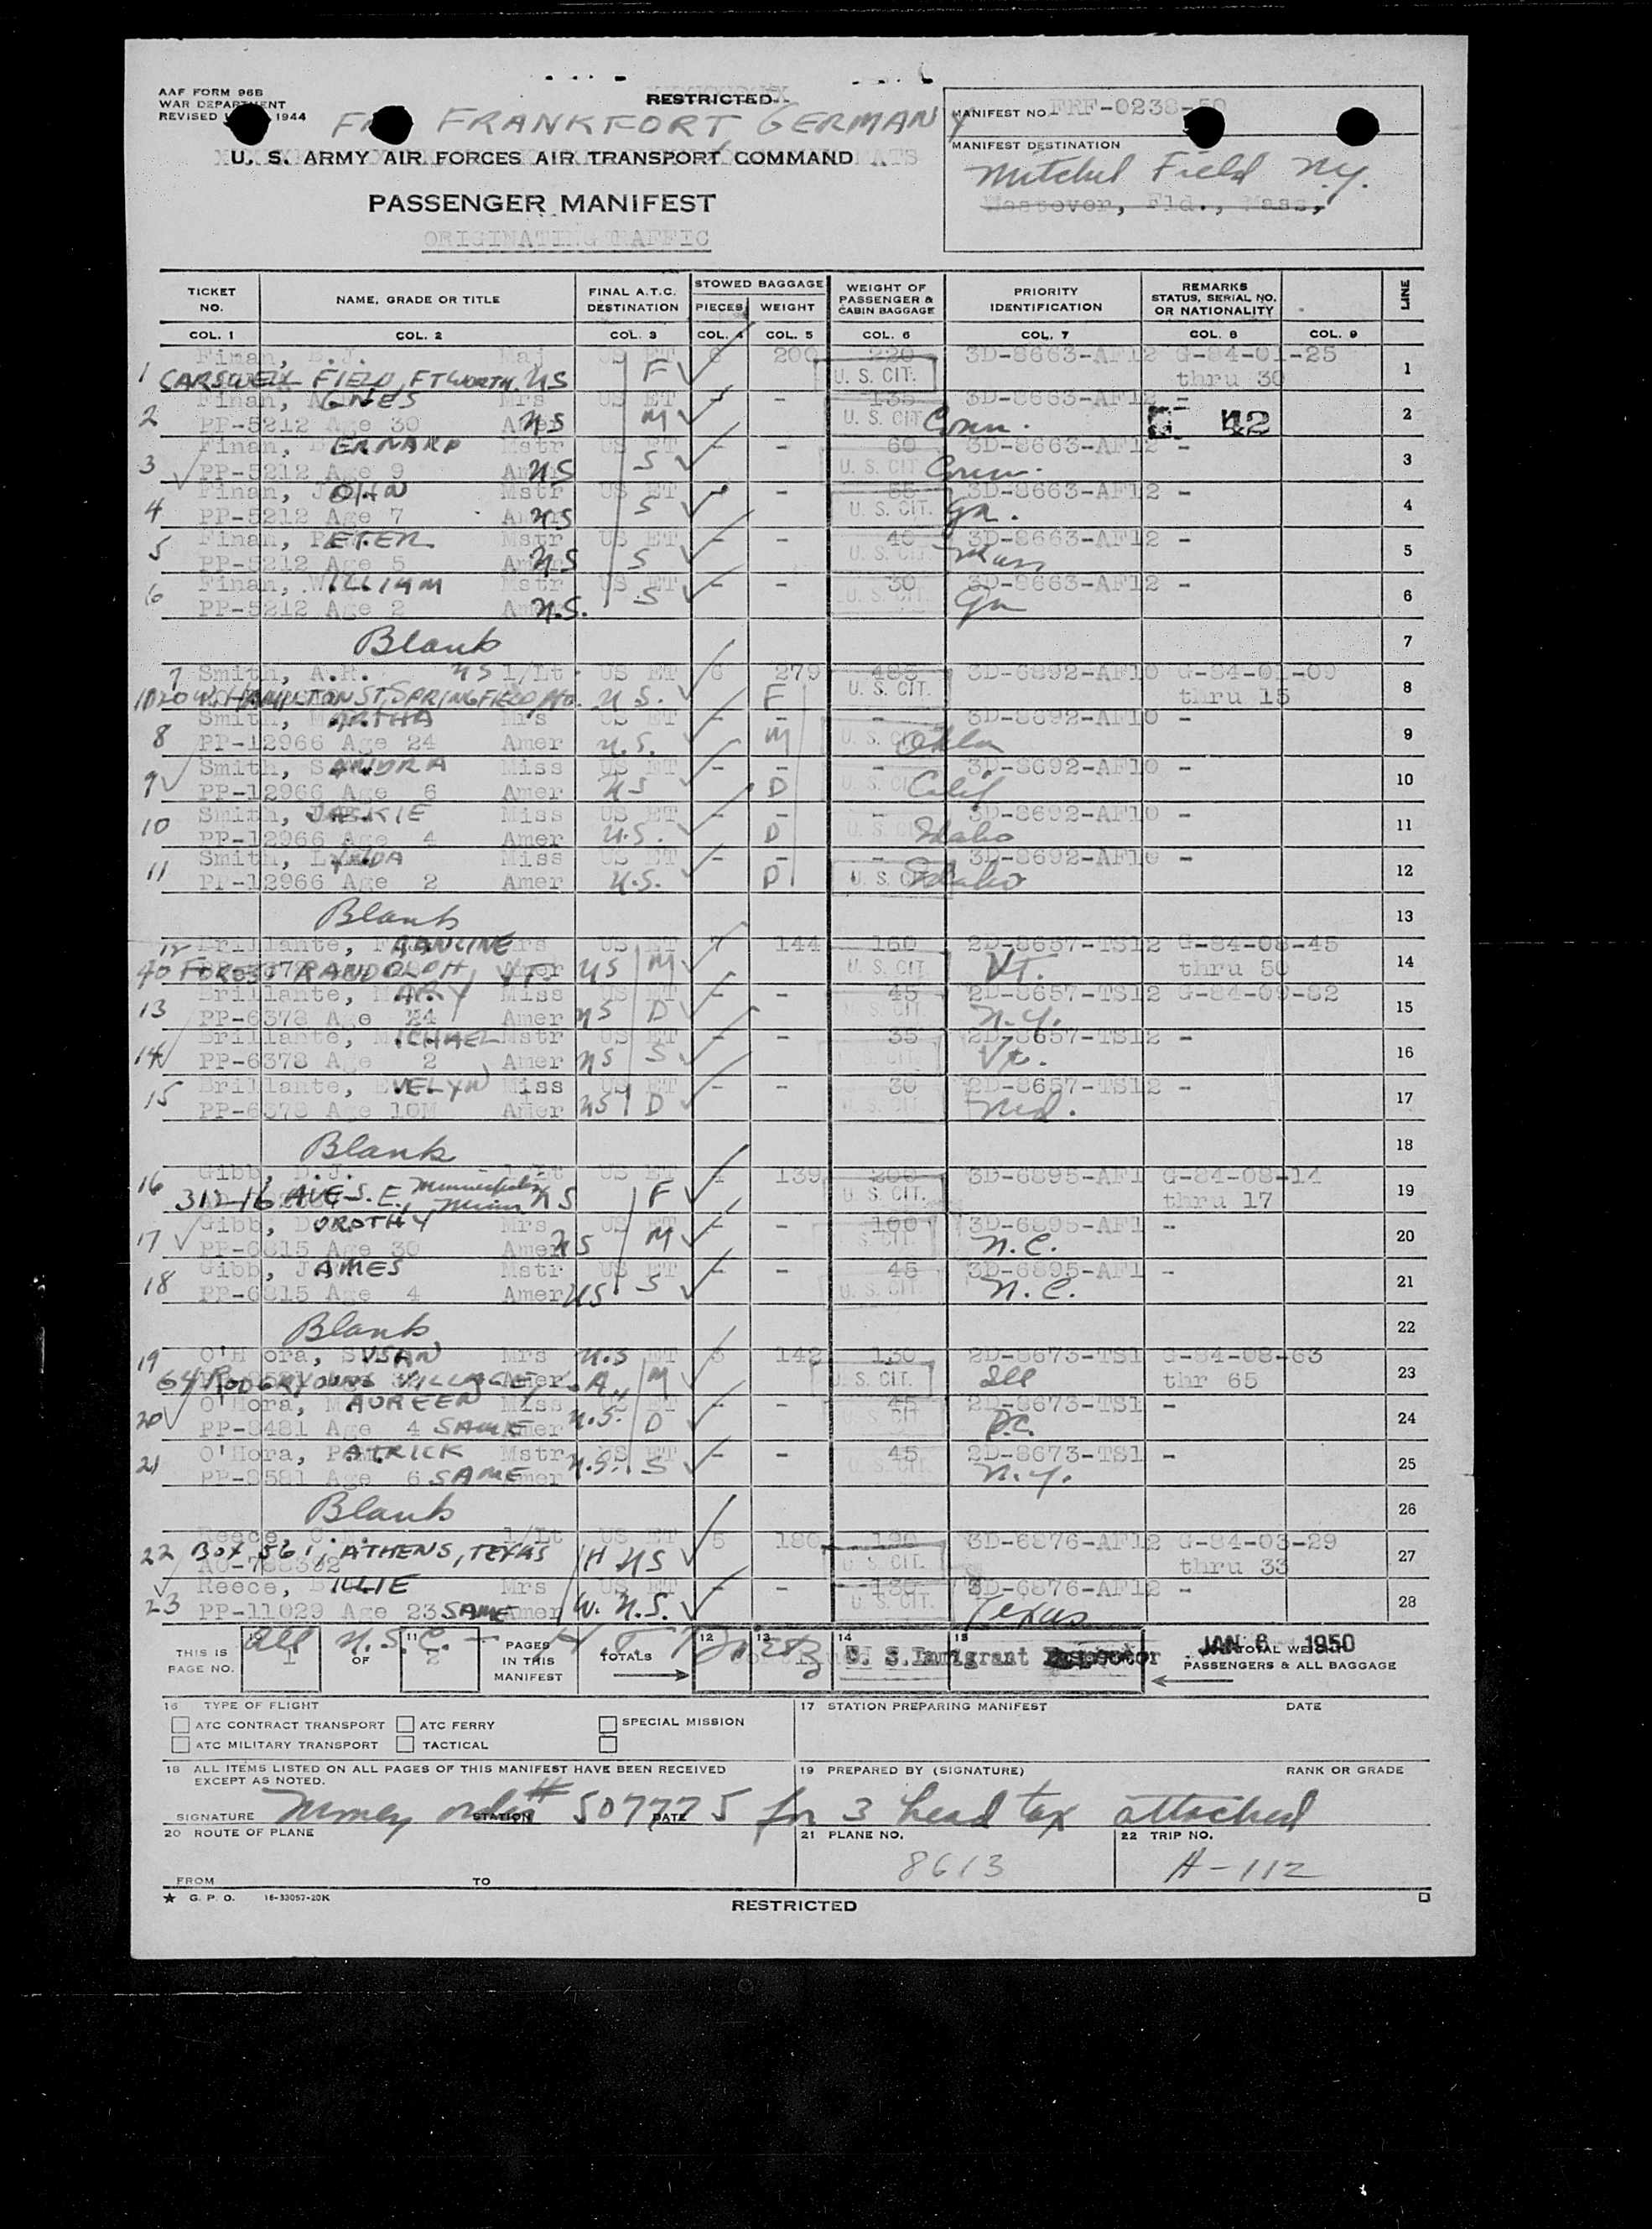 AAF FORM 96B
WAR DEPARTMENT
REVISED 1944
RESTRICTED
FRANKFORT GERMANY
U. S. ARMY AIR FORCES AIR TRANSPORT COMMAND
PASSENGER MANIFEST
ORIGINATING TRAFFIC
MANIFEST NO. FRF-0238-50
MANIFEST DESTINATION
Mitchel Field N.Y.
Westover, Fld., Mass,
TICKET NO. NAME, GRADE OR TITLE FINAL A.T.C. DESTINATION STOWED BAGGAGE PIECES WEIGHT WEIGHT OF PASSENGER & CABIN BAGGAGE PRIORITY IDENTIFICATION REMARKS STATUS, SERIAL NO. OR NATIONALITY LINE
COL. 1 COL. 2 COL. 3 COL. 4 COL. 5 COL. 6 COL. 7 COL. 8 COL. 9
Finan, Maj US ET 6 200 220 3D-8663-AF12 G-84-01-25
1 CARSWELL FIELD, FT WORTH US F U. S. CIT. thru 30 1
Finan, AGNES Mrs US ET - - 135 3D-8663-AF12 -
2 PP-5212 Age 30 Amer US M U. S. CIT Conn. 42 2
Finan, BERNARD Mstr US ET - - 60 3D-8663-AF12 -
3 PP-5212 Age 9 US S U. S. CIT Conn. 3
Finan, JOHN Mstr US ET - - 55 3D-8663-AF12 -
4 PP-5212 Age 7 US S U. S. CIT. Ga. 4
Finan, PETER Mstr US ET - - 40 3D-8663-AF12 -
5 PP-5212 Age 5 US S U. S. CIT Mass 5
Finan, WILLIAM Mstr US ET - - 30 3D-8663-AF12 -
6 PP-5212 Age 2 U.S. S U. S. CIT. Ga 6
Blank 7
7 Smith, A.R. US 1/Lt US ET 6 279 485 3D-6892-AF10 G-84-01-09
1020 W. HAMPLTON ST, SPRINGFIELD MO. U.S. F U. S. CIT. thru 15 8
Smith, MARTHA Mrs US ET - - - 3D-8692-AF10 -
8 PP-12966 Age 24 Amer U.S. M U. S. CIT Okla 9
Smith, SANDRA Miss US ET - - - 3D-8692-AF10 -
9 PP-12966 Age 6 Amer US D U. S. CIT Calif 10
Smith, JACKIE Miss US ET - - - 3D-8692-AF10 -
10 PP-12966 Age 4 Amer U.S. D U. S. CIT Idaho 11
Smith, LYNDA Miss US ET - - - 3D-8692-AF10 -
11 PP-12966 Age 2 Amer U.S. D U. S. CIT Idaho 12
Blank 13
12 Brillante, Mrs US ET 7 144 160 2D-8657-TS12 G-84-08-45
40 FOREST RANDOLPH VT. US M U. S. CIT VT. thru 50 14
Brillante, MARY Miss US ET - - 45 2D-8657-TS12 G-84-09-82
13 PP-6378 Age Amer US D U. S. CIT. N.Y. 15
Brillante, MICHAEL Mstr US ET - - 35 2D-8657-TS12 -
14 PP-6378 Age 2 Amer US S Vt. 16
Brillante, EVELYN Miss US ET - - 30 2D-8657-TS12 -
15 PP-6378 Age 10M Amer US D Md. 17
Blank 18
16 Gibb, D.J. 1/Lt US ET 4 139 200 3D-6895-AF1 G-84-08-14
312-16 AVE S.E., Minneapolis, Minn US F U. S. CIT. thru 17 19
Gibb, DOROTHY Mrs US ET - - 100 3D-6895-AF1 -
17 PP-6815 Age 30 Amer US M S. CIT. N.C. 20
Gibb, JAMES Mstr US ET - - 45 3D-6895-AF1 -
18 PP-6815 Age 4 Amer US S U. S. CIT. N.C. 21
Blank 22
19 O'Hora, SUSAN Mrs U.S ET 142 130 2D-8673-TS1 G-84-08-63
VILLAGE, L.A., M U. S. CIT. Ill thr 65 23
O'Hora, MAUREEN Miss ET - - 45 2D-8673-TS1 -
20 PP-8481 Age 4 SAME U.S. D D.C. 24
O'Hora, PATRICK Mstr US ET - - 45 2D-8673-TS1 -
21 PP-8581 Age 6 SAME U.S. S N.Y. 25
Blank 26
Reece, 1/Lt US ET 5 180 190 3D-6876-AF12 G-84-03-29
22 BOX 561, ATHENS, TEXAS H US U. S. CIT. thru 33 27
Reece, BILLIE Mrs US ET - - 130 3D-6876-AF12 -
23 PP-11029 Age 23 SAME Amer W. U.S. U. S. CIT. Texas 28
THIS IS PAGE NO. 10 1 OF 11 2 PAGES IN THIS MANIFEST TOTALS 12 13 14 15 TOTAL WEIGHT PASSENGERS & ALL BAGGAGE
All U.S.C. U. S. Immigrant Inspector JAN 6 1950
16 TYPE OF FLIGHT
ATC CONTRACT TRANSPORT ATC FERRY SPECIAL MISSION
ATC MILITARY TRANSPORT TACTICAL
17 STATION PREPARING MANIFEST DATE
18 ALL ITEMS LISTED ON ALL PAGES OF THIS MANIFEST HAVE BEEN RECEIVED EXCEPT AS NOTED.
19 PREPARED BY (SIGNATURE) RANK OR GRADE
SIGNATURE STATION DATE
Money order # 507775 for 3 head tax attached
20 ROUTE OF PLANE
FROM TO
21 PLANE NO. 8613
22 TRIP NO. A-112
★ G. P. O. 16-33057-20K
RESTRICTED